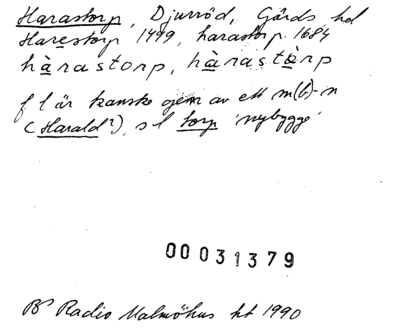 Harastorp, Djurröd, Gärds hd
Harestorp 1499, harastorp 1684
hàrastorp, hàrastòrp
f l är kanske gjem av ett m(b)-n
(Harald?), s l torp 'nybygge'
00031379
BP Radio Malmöhus ht 1990